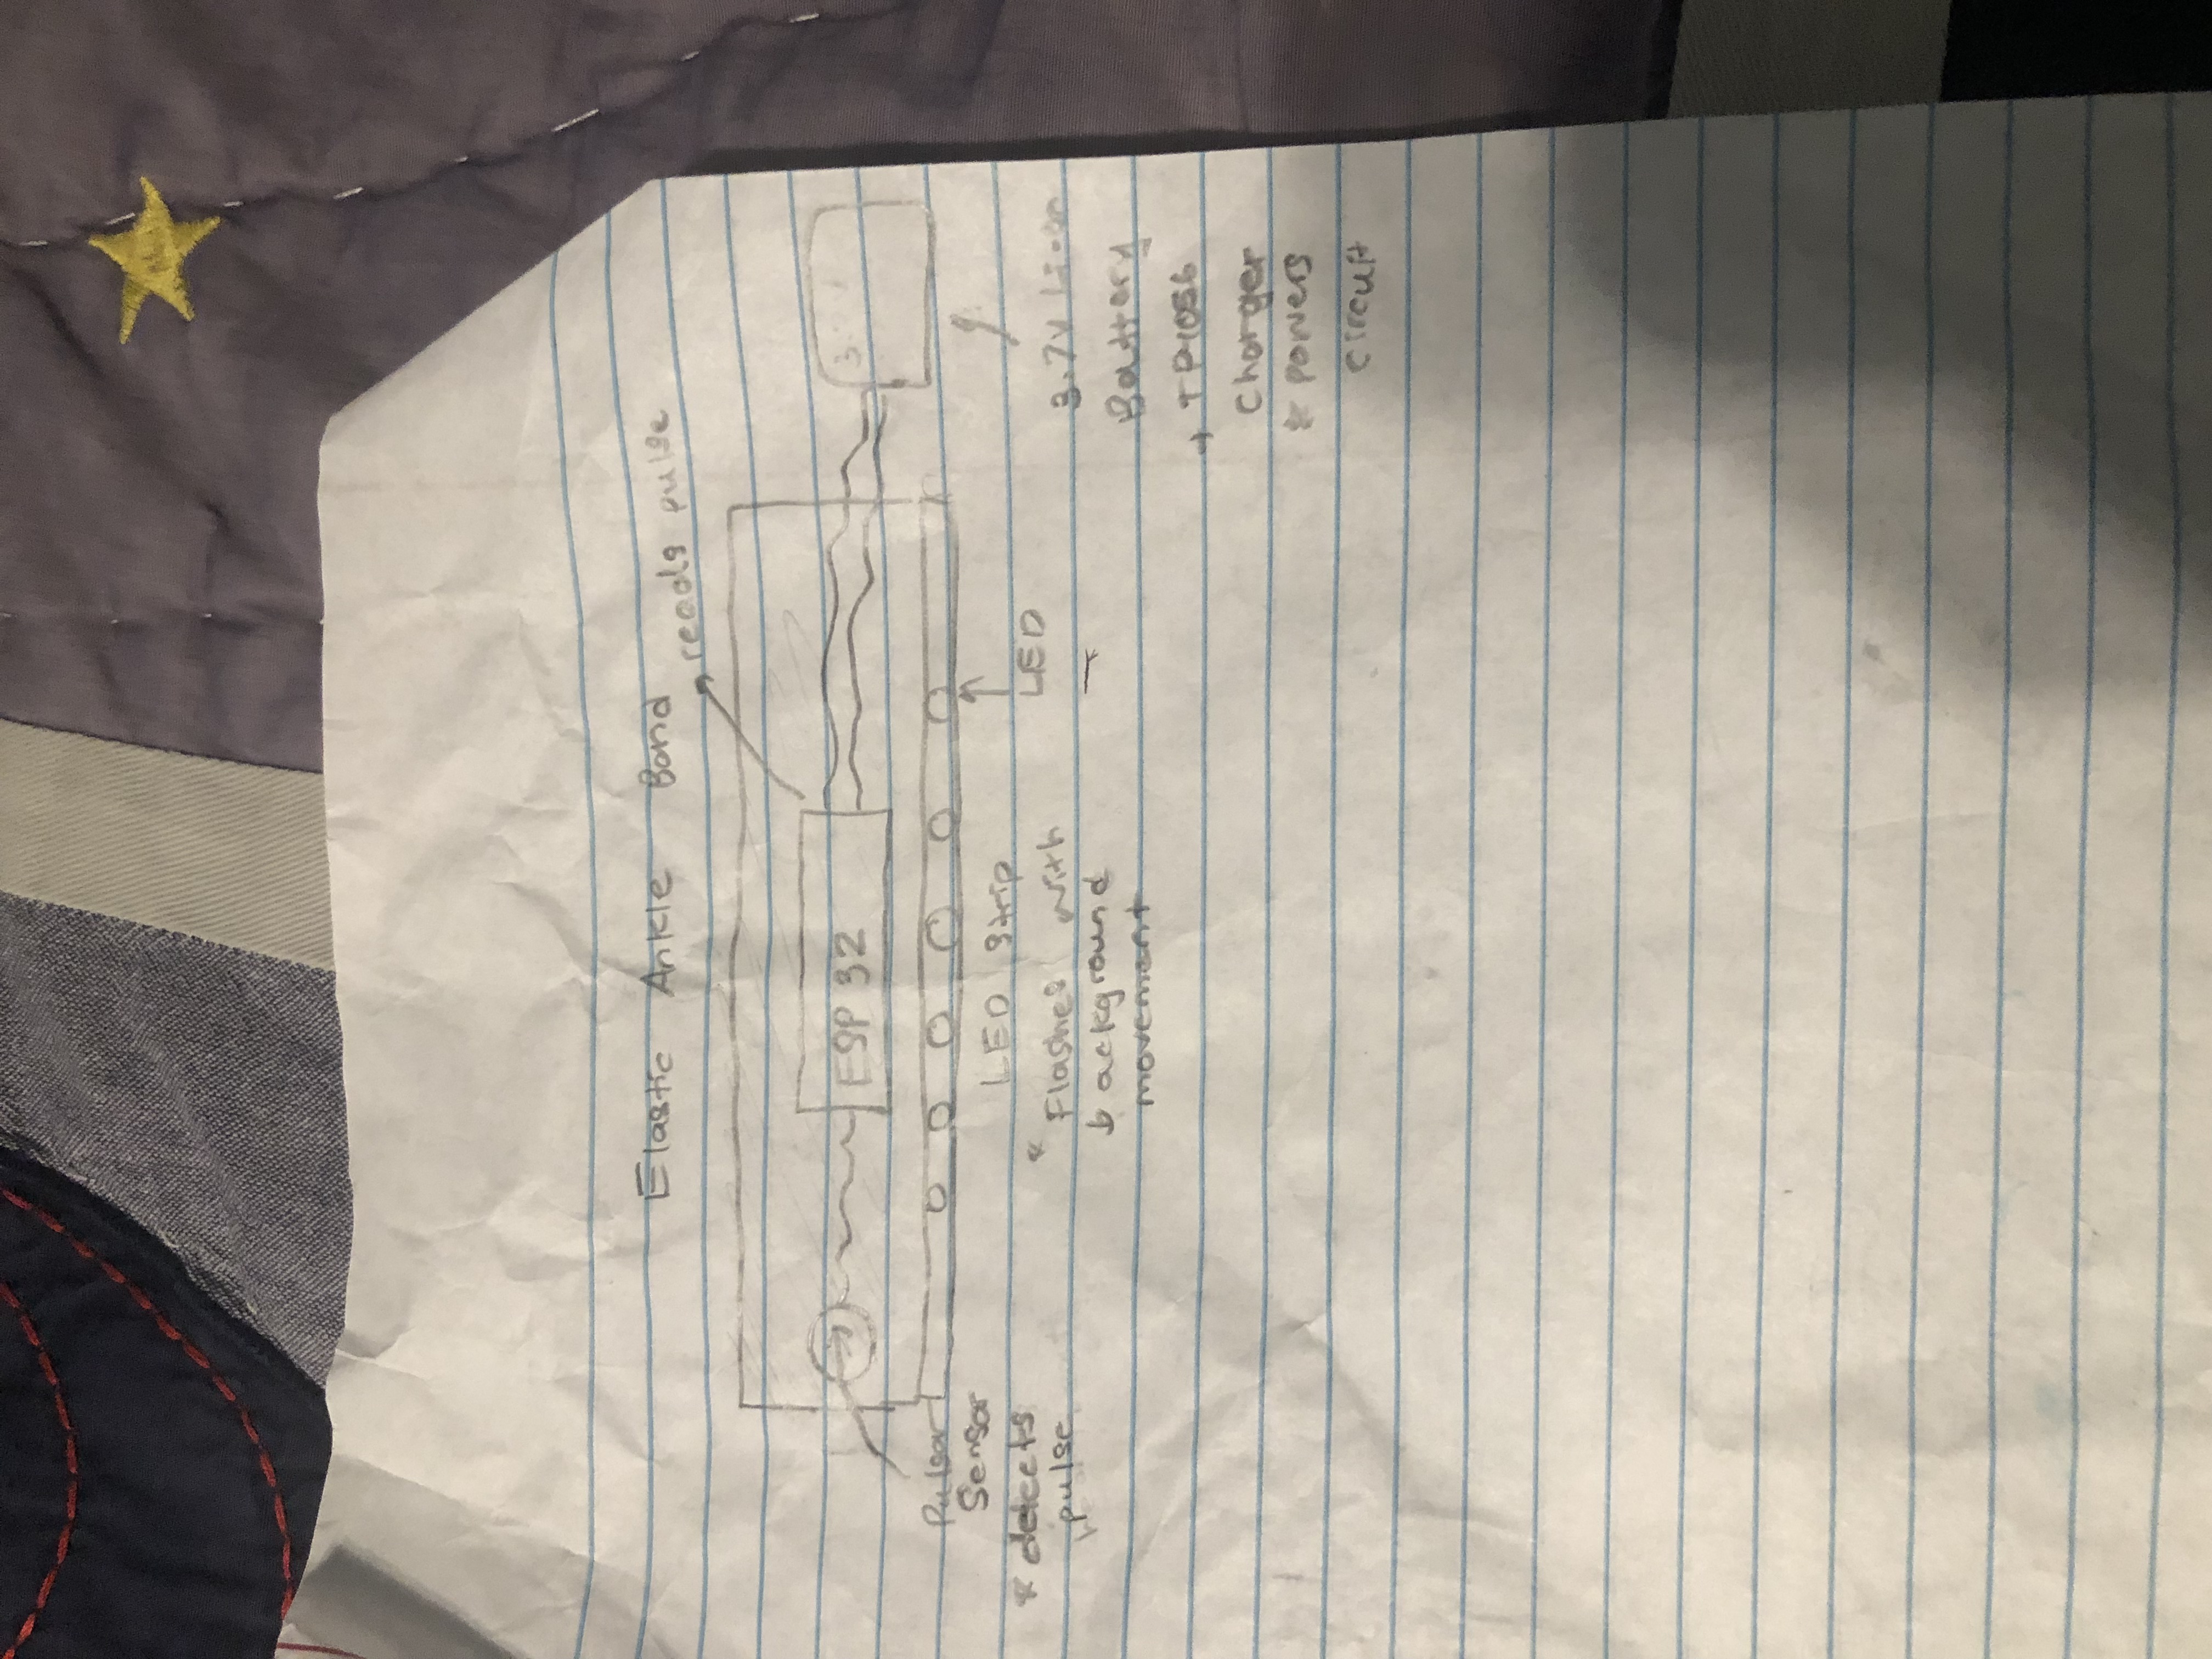 Elastic Ankle Band
reads pulse
ESP 32
Pulsar
Sensor
* detects
pulse
LED Strip
* Flashes with
background
movement
LED
3.7V Li-on
Battery
+ TP4056
Charger
* powers
circuit